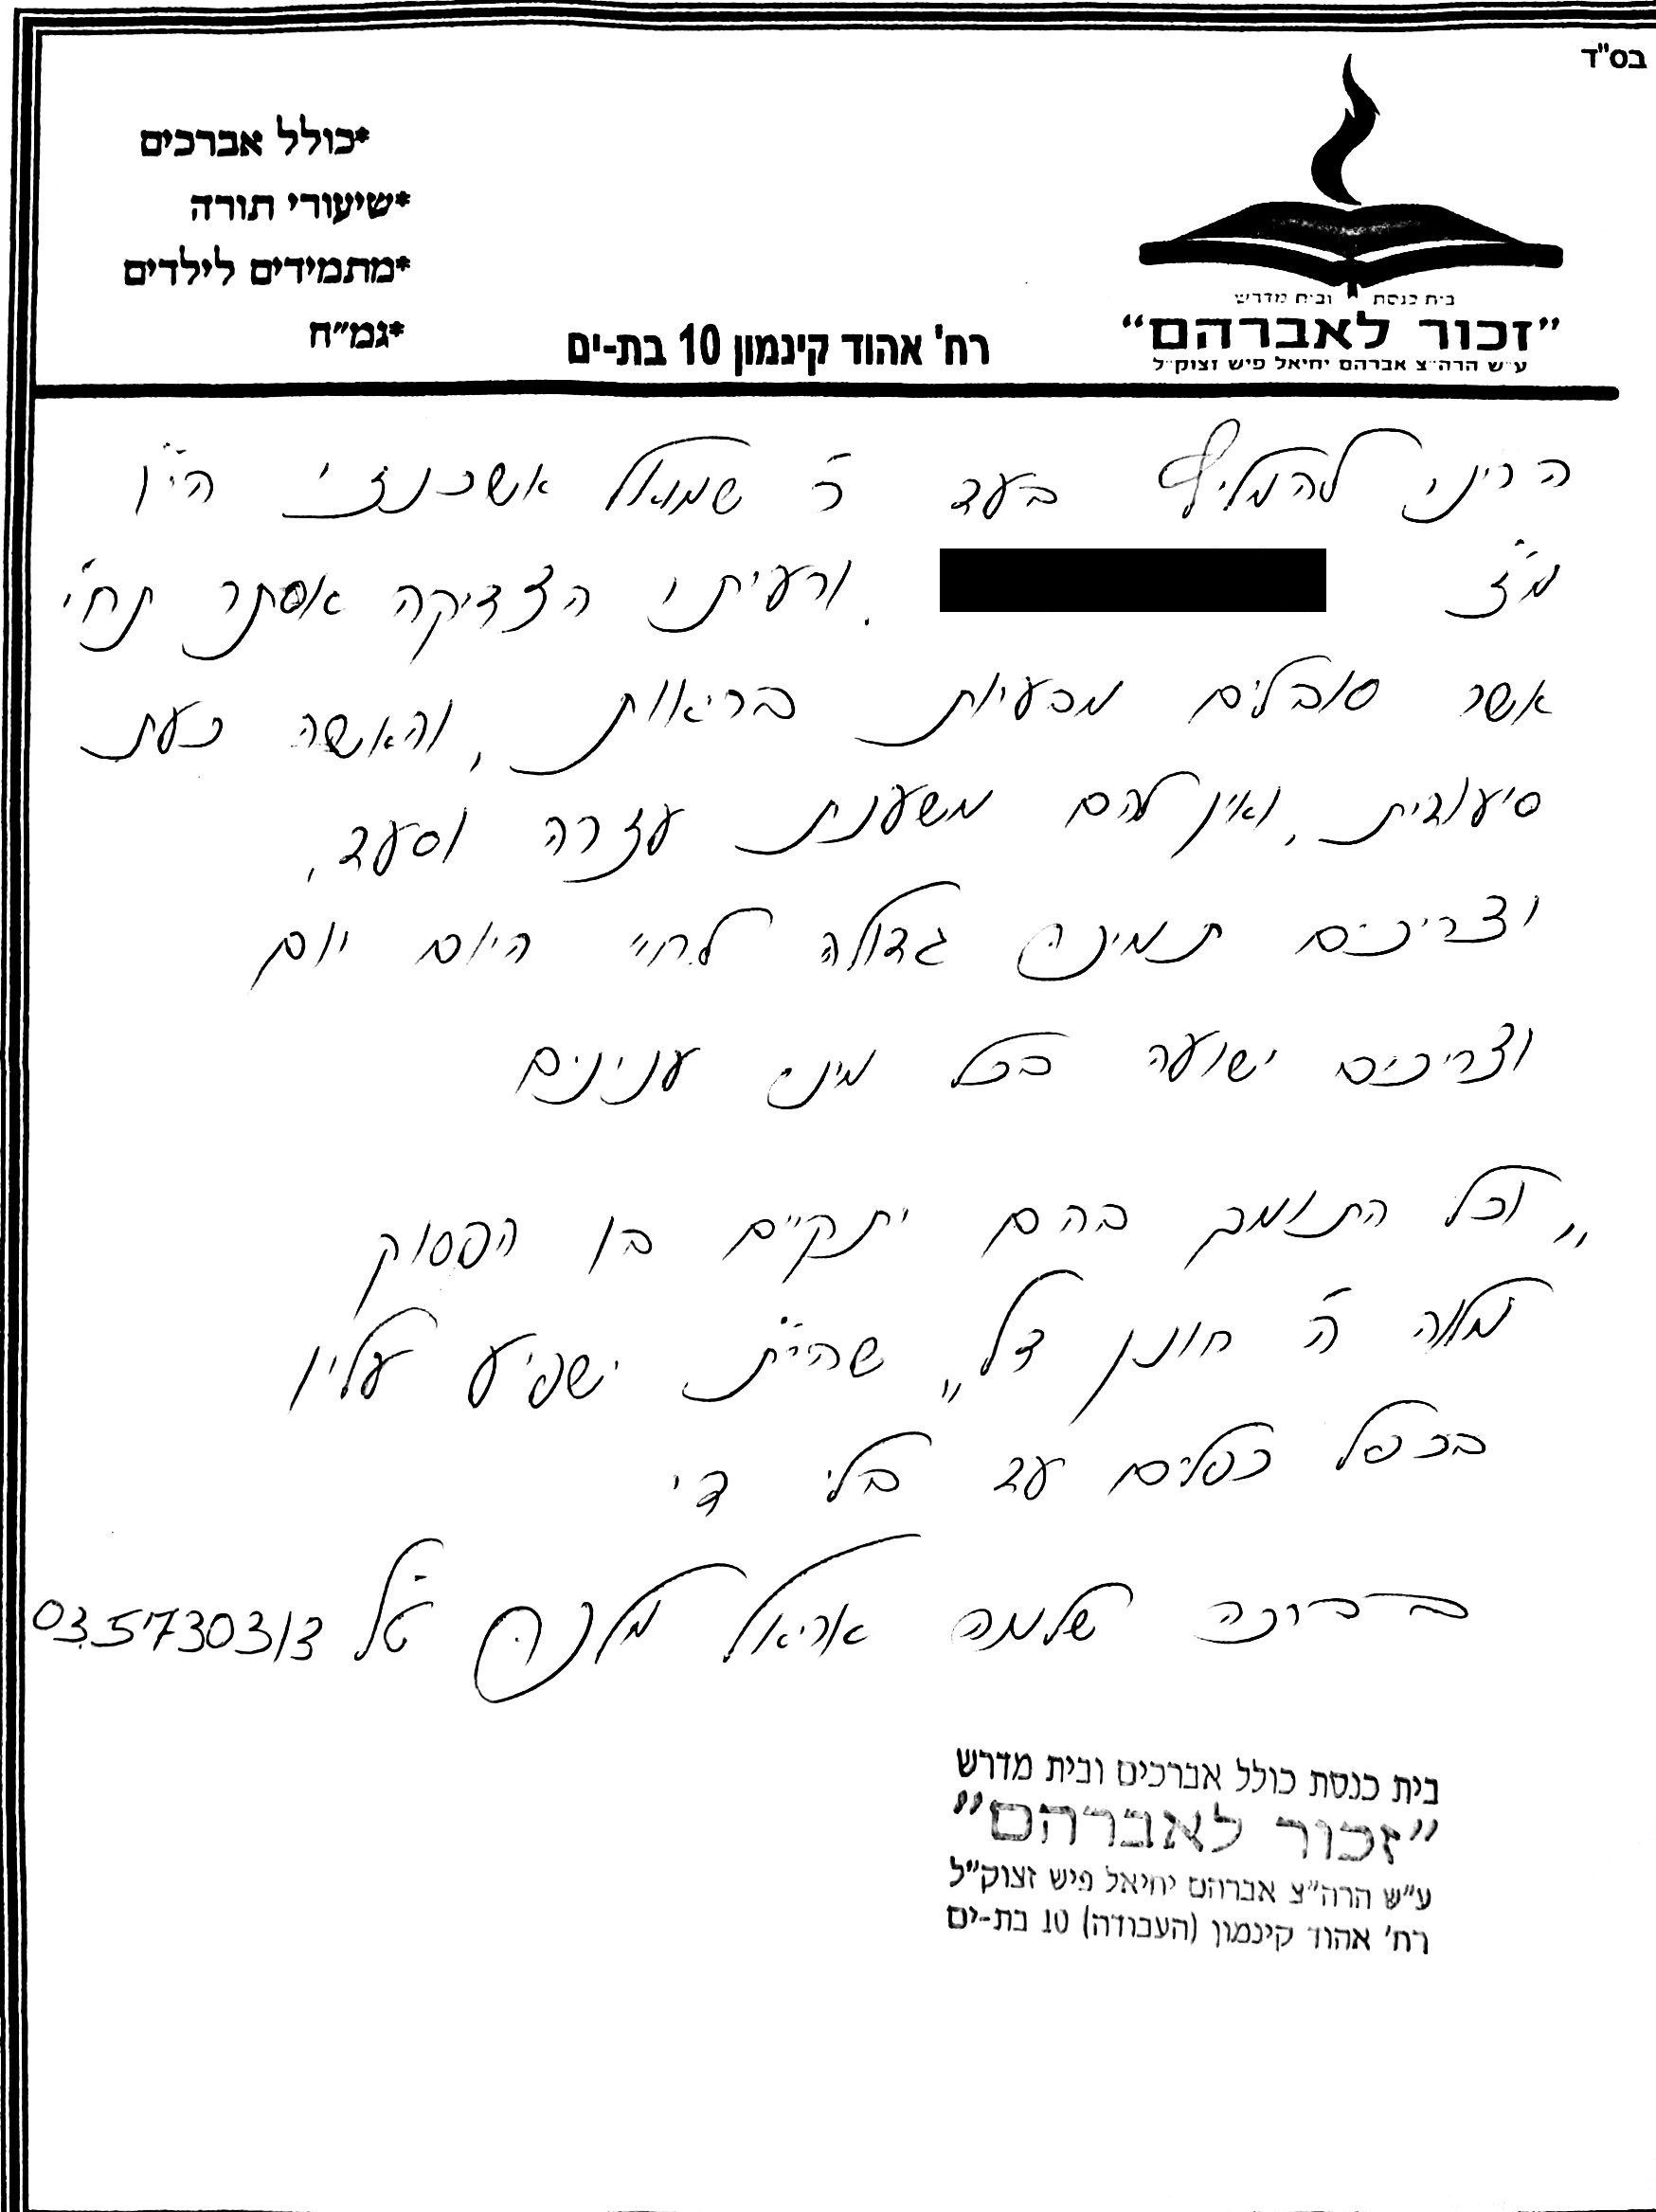 בס"ד
*כולל אברכים
*שיעורי תורה
*מתמידים לילדים
*גמ"ח
בית כנסת ובית מדרש
"זכור לאברהם"
ע"ש הרה"צ אברהם יחיאל פיש זצוק"ל
רח' אהוד קינמון 10 בת-ים
הריני להמליץ בעד ר' שמואל אשכנזי הי"ו
מ"ז ורעיתו הצדיקה אסתר תחי'
אשר סובלים מבעיות בריאות, והאשה כעת
סיעודית, ואין להם משענת עזרה וסעד,
וצריכים תמיכה גדולה לחיי היום יום
וצריכים ישועה בכל מיני ענינים
"וכל התומך בהם יתקיים בו הפסוק
מלוה ה' חונן דל" שהי"ת ישפיע עליו
בכפל כפליים עד בלי די
בברכה שלמה אריאל טל 03.5730313
בית כנסת כולל אברכים ובית מדרש
"זכור לאברהם"
ע"ש הרה"צ אברהם יחיאל פיש זצוק"ל
רח' אהוד קינמון (העבודה) 10 בת-ים